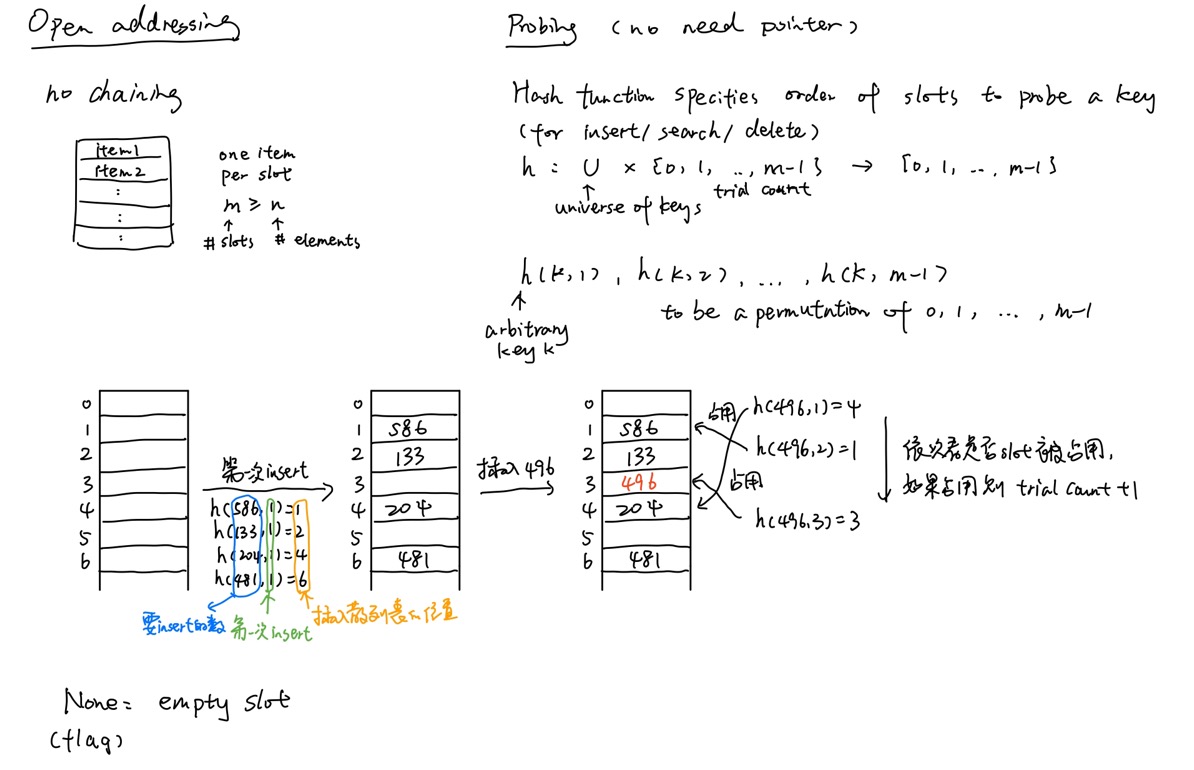 Open addressing
no chaining
item1
item2
:
:
:
one item
per slot
m ≥ n
↑ ↑
# slots # elements
Probing (no need pointer)
Hash function specifies order of slots to probe a key
(for insert/ search/ delete)
h : U × {0, 1, .., m-1} → {0, 1, .., m-1}
↑ trial count
universe of keys
h(k,1) , h(k,2) , ... , h(k, m-1)
↑ to be a permutation of 0, 1, ... , m-1
arbitrary
key k
0
1
2
3
4
5
6
第一次insert
h(586,1)=1
h(133,1)=2
h(204,1)=4
h(481,1)=6
要insert的数
第一次insert
插入散列表的位置
0
1 586
2 133
3
4 204
5
6 481
插入496
0
1 586
2 133
3 496
4 204
5
6 481
占用 h(496,1)=4
h(496,2)=1
占用
h(496,3)=3
依次看是否slot被占用,
如果占用则 trial count +1
None: empty slot
(flag)